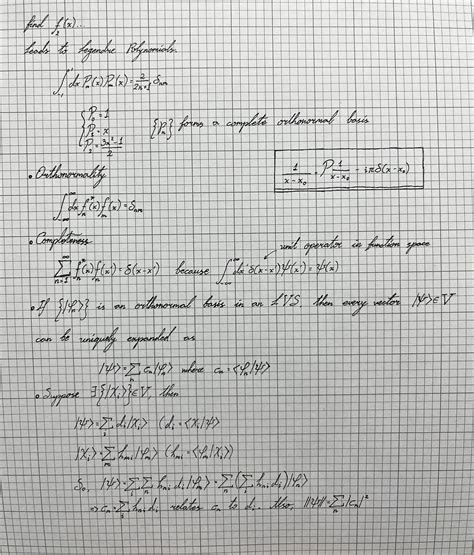 find f₂(x)...
Leads to Legendre Polynomials.
∫₋₁¹ dx Pₙ(x) Pₘ(x) = 2/(2n+1) δₙₘ
{ P₀ = 1
P₁ = x
P₂ = (3x²-1)/2
{Pₙ} forms a complete orthonormal basis
1/(x-x₀) = P 1/(x-x₀) - iπδ(x-x₀)
• Orthonormality
∫₋∞^∞ dx fₙ*(x) fₘ(x) = δₙₘ
• Completeness
unit operator in function space
∑ₙ₌₁^∞ fₙ*(x) fₙ(x') = δ(x-x') because ∫₋∞^∞ dx' δ(x-x') Ψ(x') = Ψ(x)
• If {|φₙ⟩} is an orthonormal basis in an LVS, then every vector |ψ⟩ ∈ V
can be uniquely expanded as
|ψ⟩ = ∑ₙ cₙ|φₙ⟩ where cₙ = ⟨φₙ|ψ⟩
• Suppose ∃{|χᵢ⟩} ∈ V, then
|ψ⟩ = ∑ᵢ dᵢ|χᵢ⟩ (dᵢ = ⟨χᵢ|ψ⟩
|χᵢ⟩ = ∑ₘ hₘᵢ|φₘ⟩ (hₘᵢ = ⟨φₘ|χᵢ⟩
So, |ψ⟩ = ∑ᵢ ∑ₙ hₙᵢ dᵢ|φₙ⟩ = ∑ₙ (∑ᵢ hₙᵢ dᵢ)|φₙ⟩
⇒ cₙ = ∑ᵢ hₙᵢ dᵢ relates cₙ to dᵢ. Also, ||ψ|| = ∑ₙ |cₙ|²